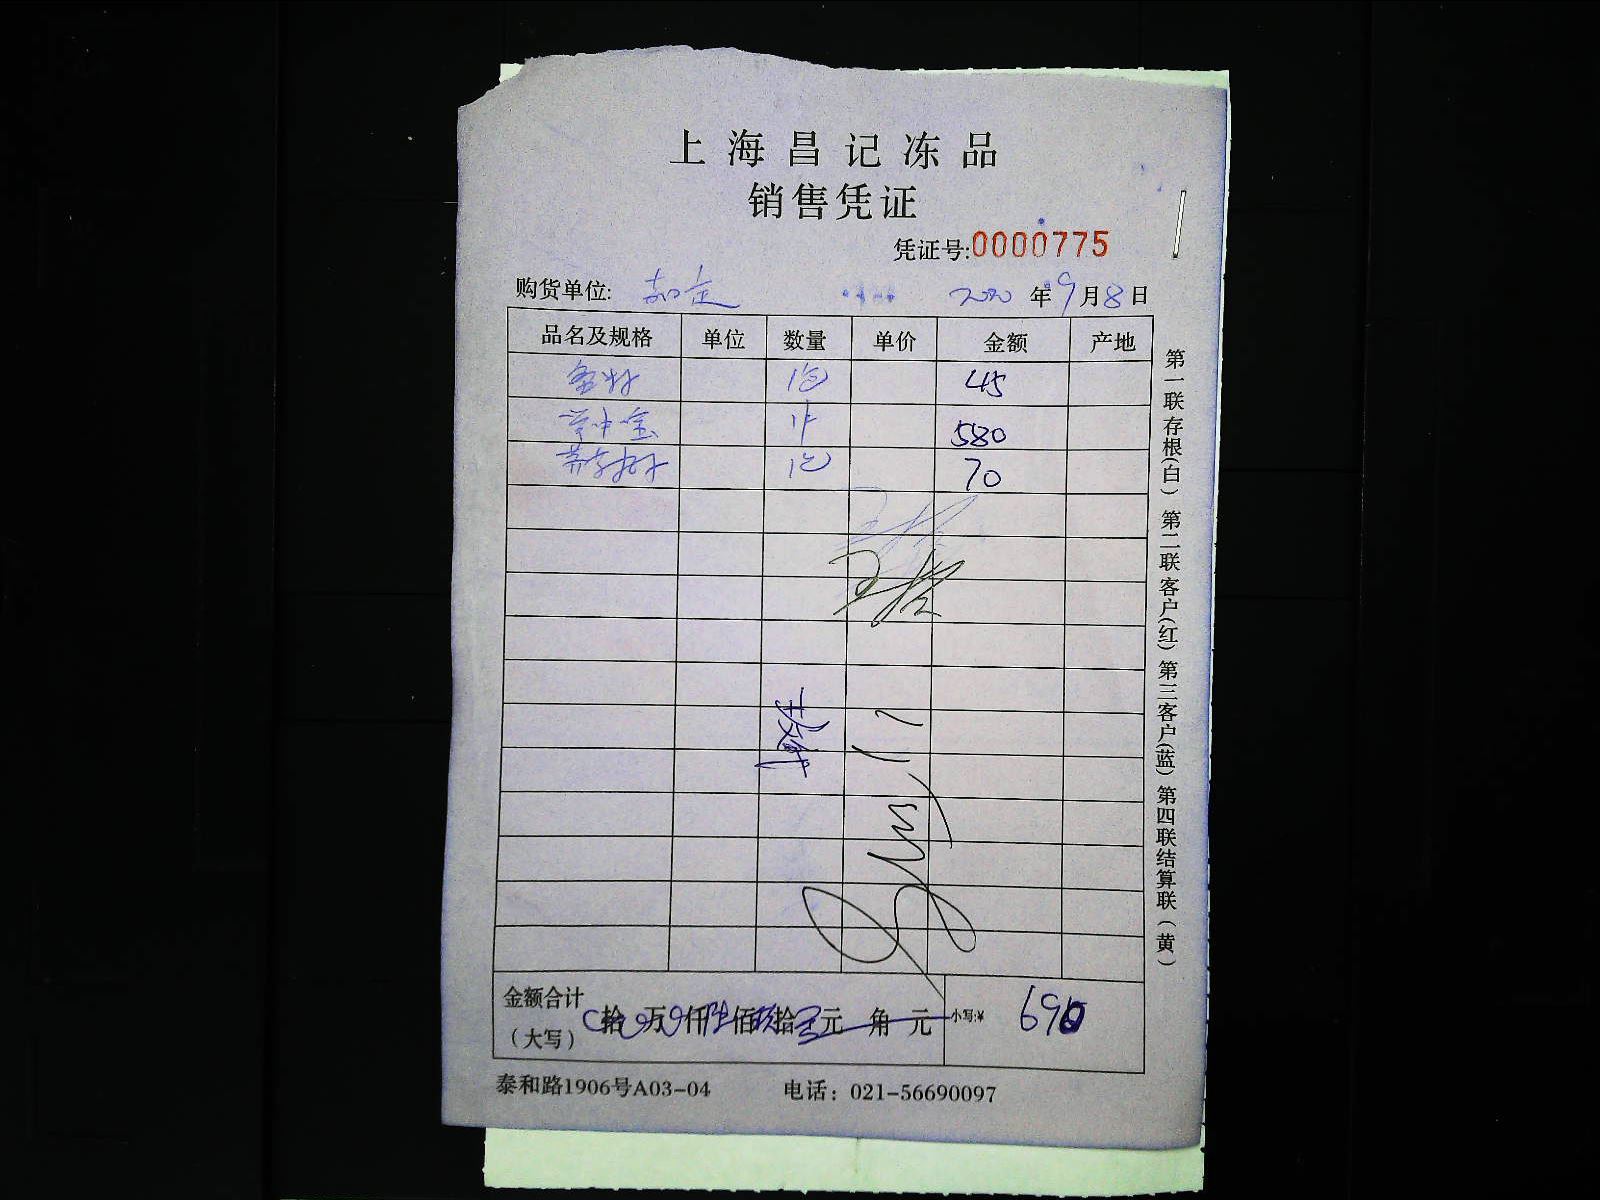 上海昌记冻品
销售凭证
凭证号:0000775
购货单位: 嘉定 2020年9月8日
品名及规格 单位 数量 单价 金额 产地
1包 45
1件 580
1包 70
王
金额合计
(大写) 拾 万 仟陆佰 拾 元 角 元 小写:¥ 690
泰和路1906号A03-04 电话: 021-56690097
第一联存根(白) 第二联客户(红) 第三客户(蓝) 第四联结算联(黄)